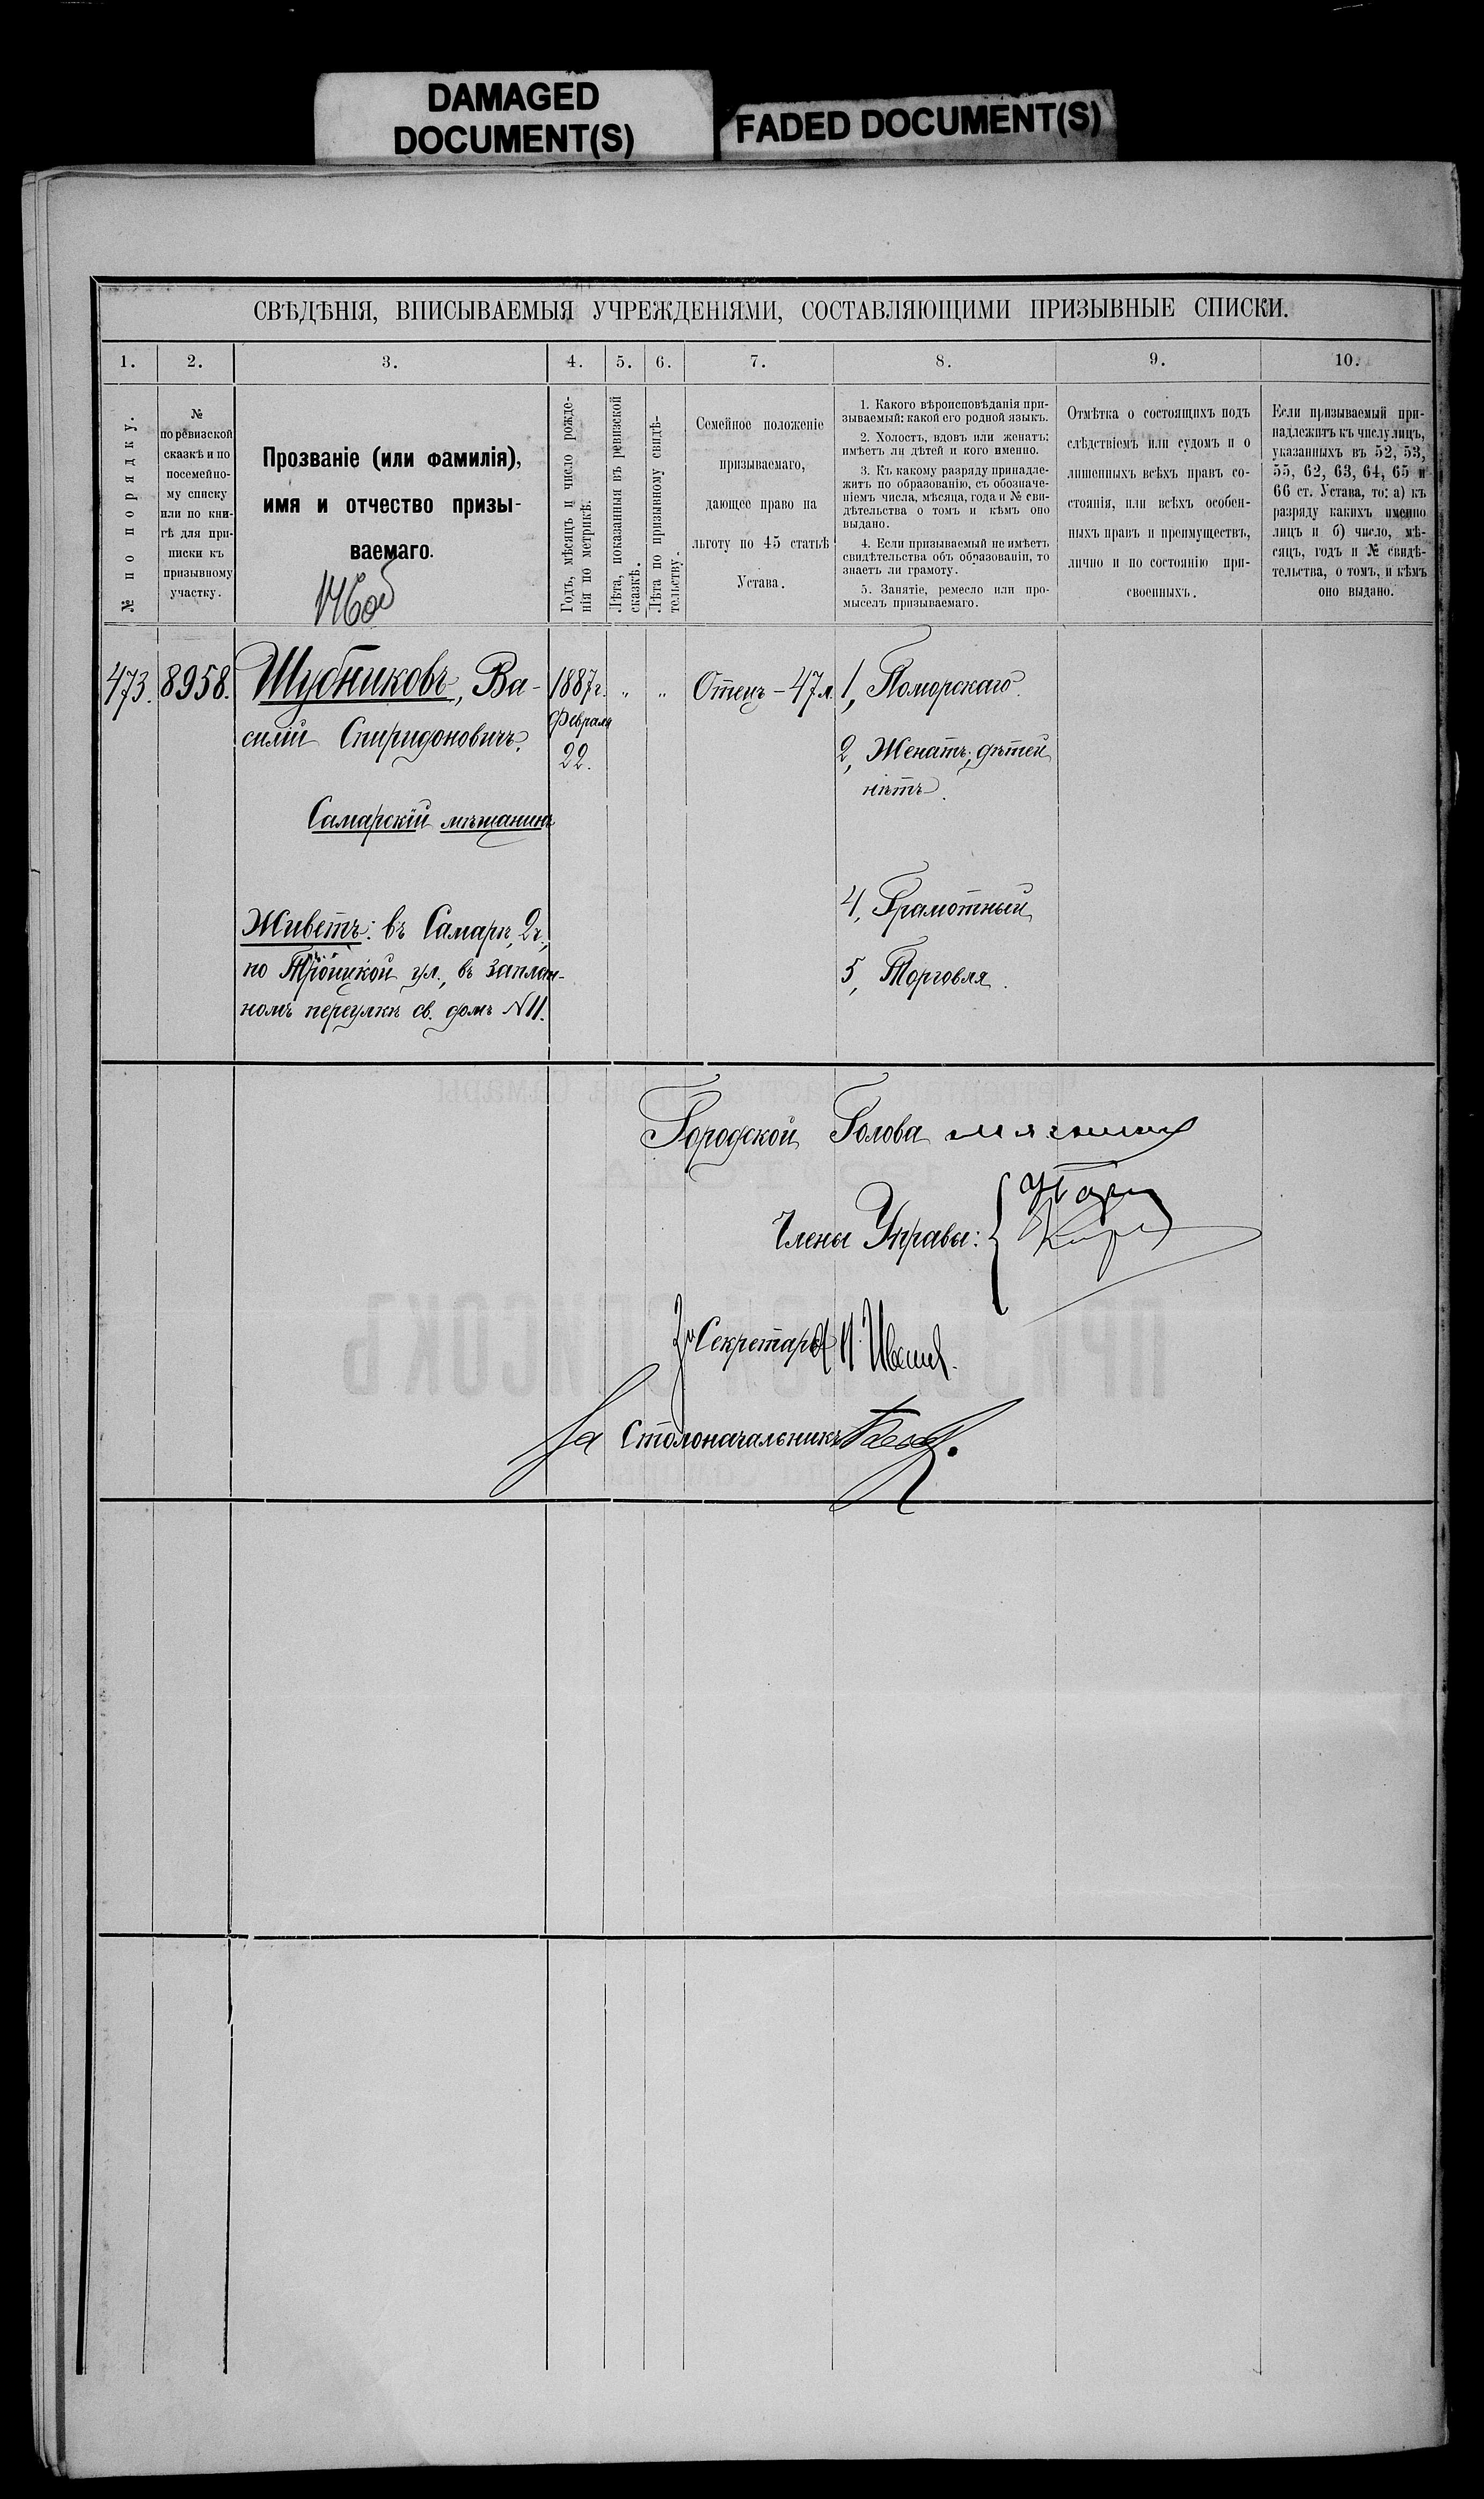 DAMAGED
DOCUMENT(S)
FADED DOCUMENT(S)
СВѢДѢНІЯ, ВПИСЫВАЕМЫЯ УЧРЕЖДЕНІЯМИ, СОСТАВЛЯЮЩИМИ ПРИЗЫВНЫЕ СПИСКИ.
1. 2. 3. 4. 5. 6. 7. 8. 9. 10.
№ по порядку.
№
по ревизской
сказкѣ и по
посемейно-
му списку
или по кни-
гѣ для при-
писки къ
призывному
участку.
Прозваніе (или фамилія),
имя и отчество призы-
ваемаго.
Годъ, мѣсяцъ и число рожде-
нія по метрикѣ.
Лѣта, показанныя въ ревизской
сказкѣ.
Лѣта по призывному свидѣ-
тельству.
Семейное положеніе
призываемаго,
дающее право на
льготу по 45 статьѣ
Устава.
1. Какого вѣроисповѣданія при-
зываемый: какой его родной языкъ.
2. Холостъ, вдовъ или женатъ:
имѣетъ ли дѣтей и кого именно.
3. Къ какому разряду принадле-
житъ по образованію, съ обозначе-
ніемъ числа, мѣсяца, года и № сви-
дѣтельства о томъ и кѣмъ оно
выдано.
4. Если призываемый не имѣетъ
свидѣтельства объ образованіи, то
знаетъ ли грамоту.
5. Занятіе, ремесло или про-
мыселъ призываемаго.
Отмѣтка о состоящихъ подъ
слѣдствіемъ или судомъ и о
лишенныхъ всѣхъ правъ со-
стоянія, или всѣхъ особен-
ныхъ правъ и преимуществъ,
лично и по состоянію при-
своенныхъ.
Если призываемый при-
надлежитъ къ числу лицъ,
указанныхъ въ 52, 53,
55, 62, 63, 64, 65 и
66 ст. Устава, то: а) къ
разряду какихъ именно
лицъ и б) число, мѣ-
сяцъ, годъ и № свидѣ-
тельства, о томъ, и кѣмъ
оно выдано.
473. 8958. Шубниковъ, Ва-
силій Спиридоновичъ.
Самарскій мѣщанинъ
Живетъ: въ Самарѣ, 2ч.,
по Троицкой ул., въ Заплан-
номъ переулкѣ св. домъ N 11.
1887 г.
Февраля
22.
" "
Отецъ - 47 л.
1, Поморскаго.
2, Женатъ; дѣтей
нѣтъ.
4, Грамотный
5, Торговля.
Городской Голова
Члены Управы:
Секретарь
За Столоначальникъ